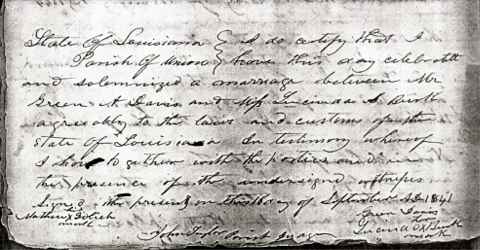 State Of Louisiana } I do certify that I
Parish Of Union } have this day celebrate
and solemnized a marriage between Mr
Green A Davis and Miss Lucinda S.
agreeably to the laws and customs of the
State Of Louisiana In testimony whereof
I have to gether with the parties and in
the presence of the undersigned witness
Signed who present on this 16 day of September AD 1841
Mathew Green Davis
mark her
John Taylor Parish Judge Lucinda X
mark